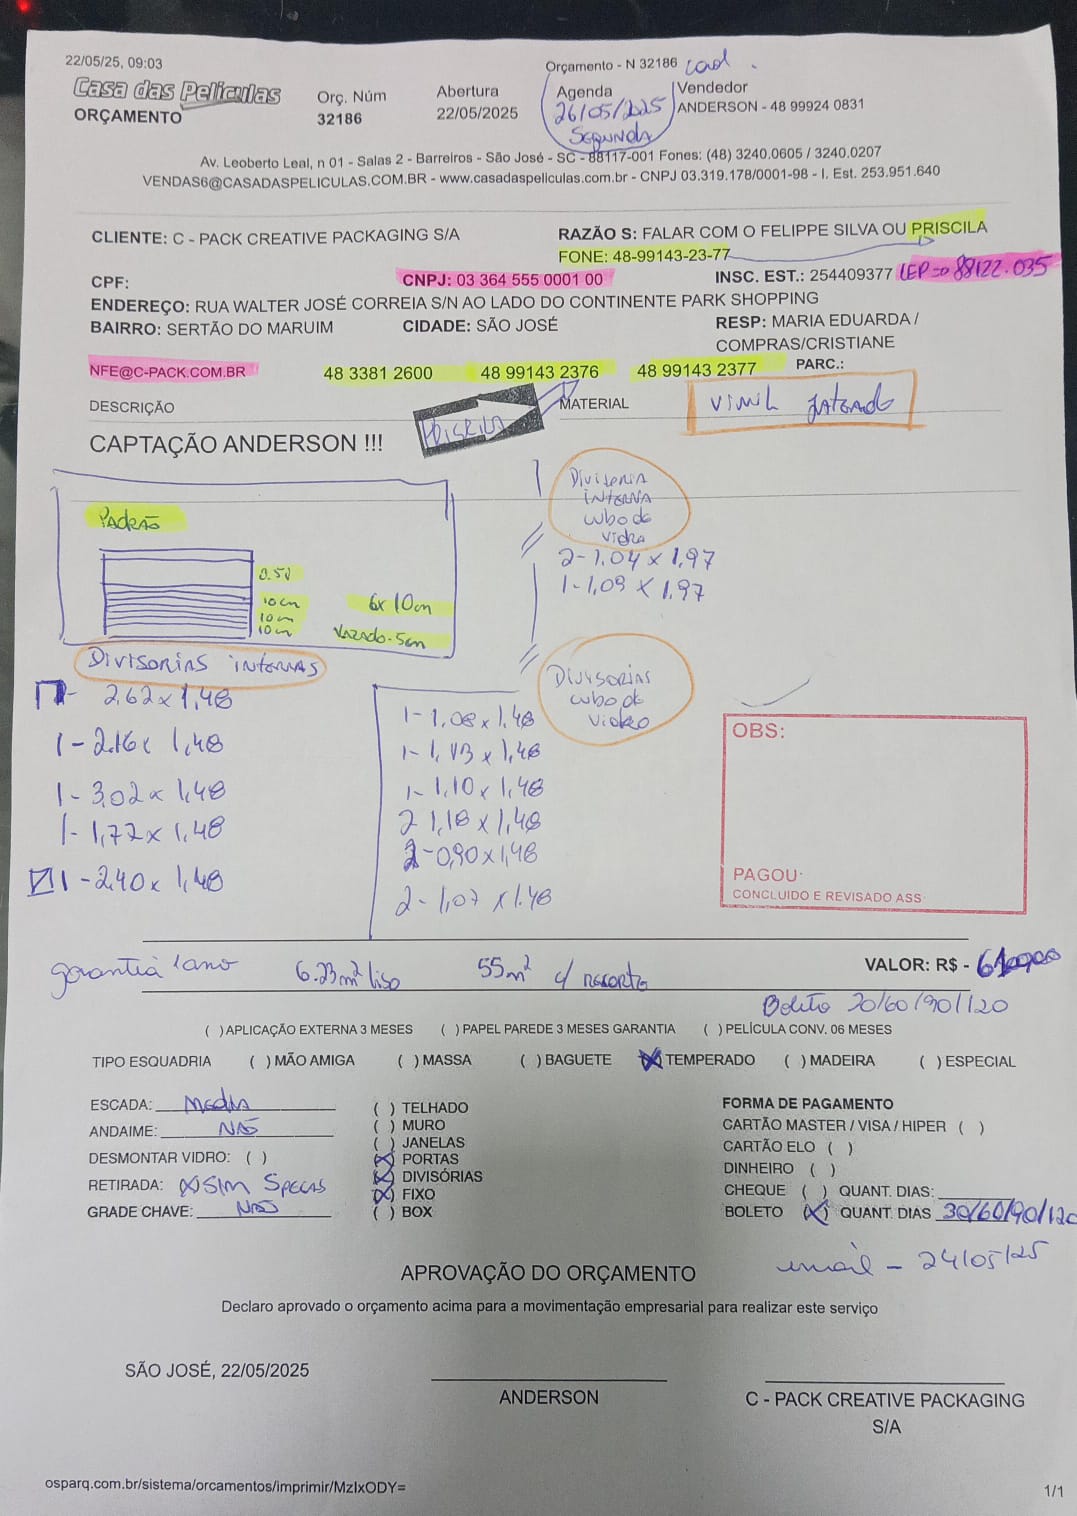 22/05/25, 09:03
Orçamento - N 32186 cad.
Casa das Películas
ORÇAMENTO
Orç. Núm
32186
Abertura
22/05/2025
Agenda
26/05/2025
SEGUNDA
Vendedor
ANDERSON - 48 99924 0831
Av. Leoberto Leal, n 01 - Salas 2 - Barreiros - São José - SC - 88117-001 Fones: (48) 3240.0605 / 3240.0207
VENDAS6@CASADASPELICULAS.COM.BR - www.casadaspeliculas.com.br - CNPJ 03.319.178/0001-98 - I. Est. 253.951.640
CLIENTE: C - PACK CREATIVE PACKAGING S/A
RAZÃO S: FALAR COM O FELIPPE SILVA OU PRISCILA
FONE: 48-99143-23-77
CPF:
CNPJ: 03 364 555 0001 00
INSC. EST.: 254409377 CEP=> 88122.035
ENDEREÇO: RUA WALTER JOSÉ CORREIA S/N AO LADO DO CONTINENTE PARK SHOPPING
BAIRRO: SERTÃO DO MARUIM
CIDADE: SÃO JOSÉ
RESP: MARIA EDUARDA /
COMPRAS/CRISTIANE
NFE@C-PACK.COM.BR
48 3381 2600
48 99143 2376
48 99143 2377
PARC.:
DESCRIÇÃO
PRISCILA
MATERIAL
VINIL JATEADO
CAPTAÇÃO ANDERSON !!!
PADRÃO
0.50
10cm
10cm
10cm
6x10cm
VAZADO-5cm
Divisoria
INTERNA
cubo de
vidro
2-1,04 x 1,97
1-1,09 x 1,97
Divisorias internas
1- 2,62 x 1,48
1-2.16 x 1,48
1-3,02 x 1,48
1-1,77 x 1,48
1-2,40 x 1,48
Divisorias
cubo de
vidro
1-1,08 x 1,48
1-1,13 x 1,48
1-1,10 x 1,48
2 1,18 x 1,48
2-0,90 x 1,48
2-1,07 x 1.48
OBS:
PAGOU:
CONCLUIDO E REVISADO ASS
garantia 1 ano
6.23m² liso
55m² c/ recorte
VALOR: R$ -
Boleto 30/60/90/120
( ) APLICAÇÃO EXTERNA 3 MESES ( ) PAPEL PAREDE 3 MESES GARANTIA ( ) PELÍCULA CONV. 06 MESES
TIPO ESQUADRIA ( ) MÃO AMIGA ( ) MASSA ( ) BAGUETE (X) TEMPERADO ( ) MADEIRA ( ) ESPECIAL
ESCADA: Media
ANDAIME: NÃO
DESMONTAR VIDRO: ( )
RETIRADA: (X) SIM SPECAS
GRADE CHAVE: NÃO
( ) TELHADO
( ) MURO
( ) JANELAS
(X) PORTAS
(X) DIVISÓRIAS
(X) FIXO
( ) BOX
FORMA DE PAGAMENTO
CARTÃO MASTER / VISA / HIPER ( )
CARTÃO ELO ( )
DINHEIRO ( )
CHEQUE ( ) QUANT. DIAS:
BOLETO (X) QUANT. DIAS 30/60/90/120
email - 24/05/25
APROVAÇÃO DO ORÇAMENTO
Declaro aprovado o orçamento acima para a movimentação empresarial para realizar este serviço
SÃO JOSÉ, 22/05/2025
ANDERSON
C - PACK CREATIVE PACKAGING
S/A
osparq.com.br/sistema/orcamentos/imprimir/MzIxODY=
1/1